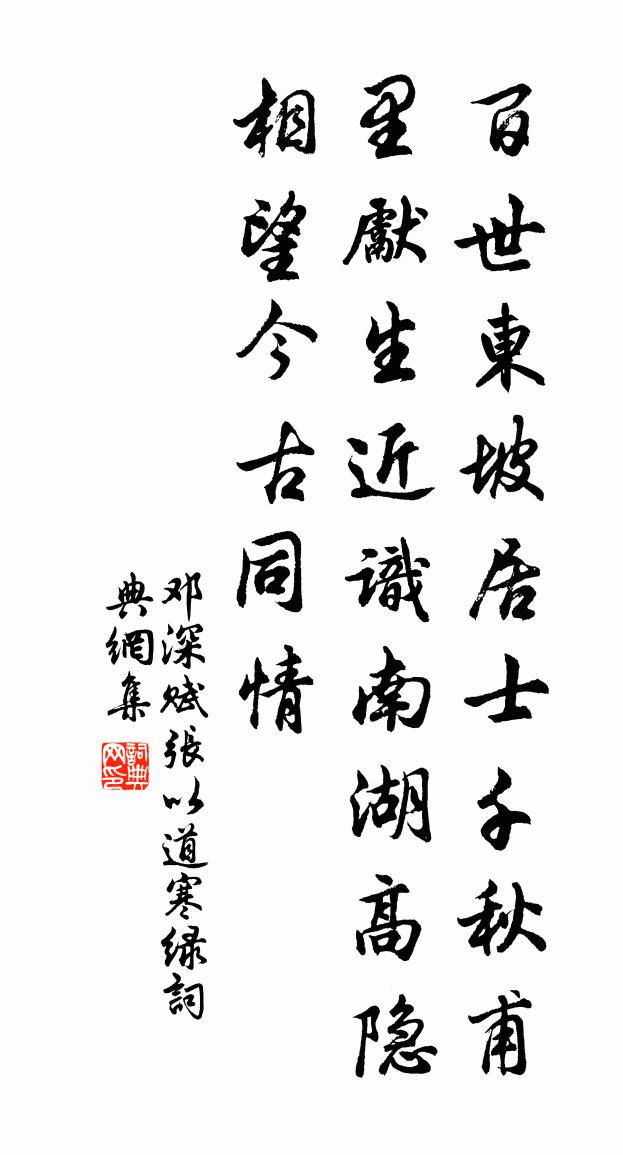 百世東坡居士千秋甫
里獻生近識南湖高隐
相望今古同情
邓深赋張以道寒緑詞
典網集
詞典网印